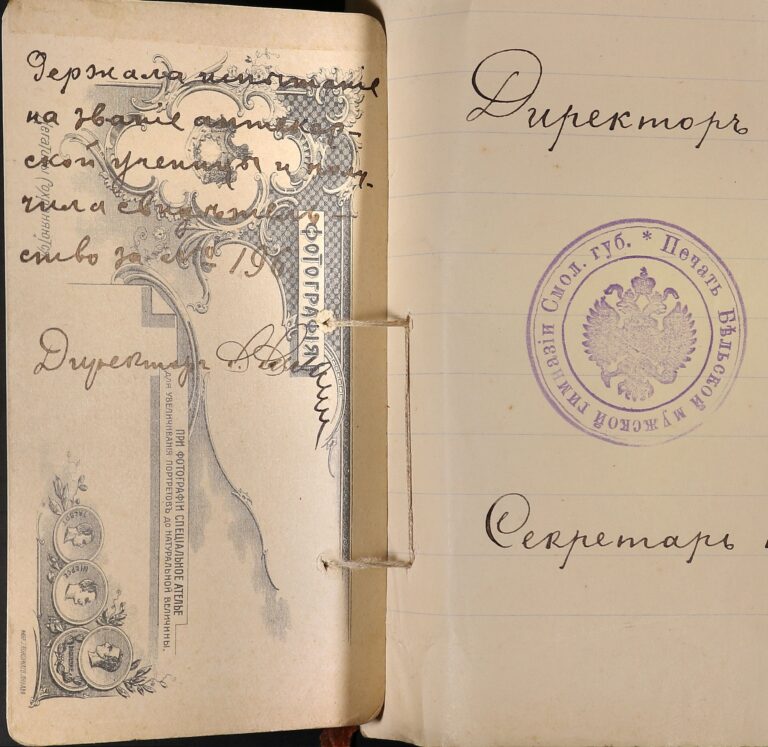 Держала испытаніе
на званіе аптекар-
ской ученицы и полу-
чила свидѣтель-
ство за № 196
Директоръ
ФОТОГРАФІЯ
ПРИ ФОТОГРАФІИ СПЕЦІАЛЬНОЕ АТЕЛЬЕ
ДЛЯ УВЕЛИЧИВАНІЯ ПОРТРЕТОВЪ ДО НАТУРАЛЬНОЙ ВЕЛИЧИНЫ.
Директоръ
* Печать Бѣльской мужской гимназіи Смол. губ.
Секретарь